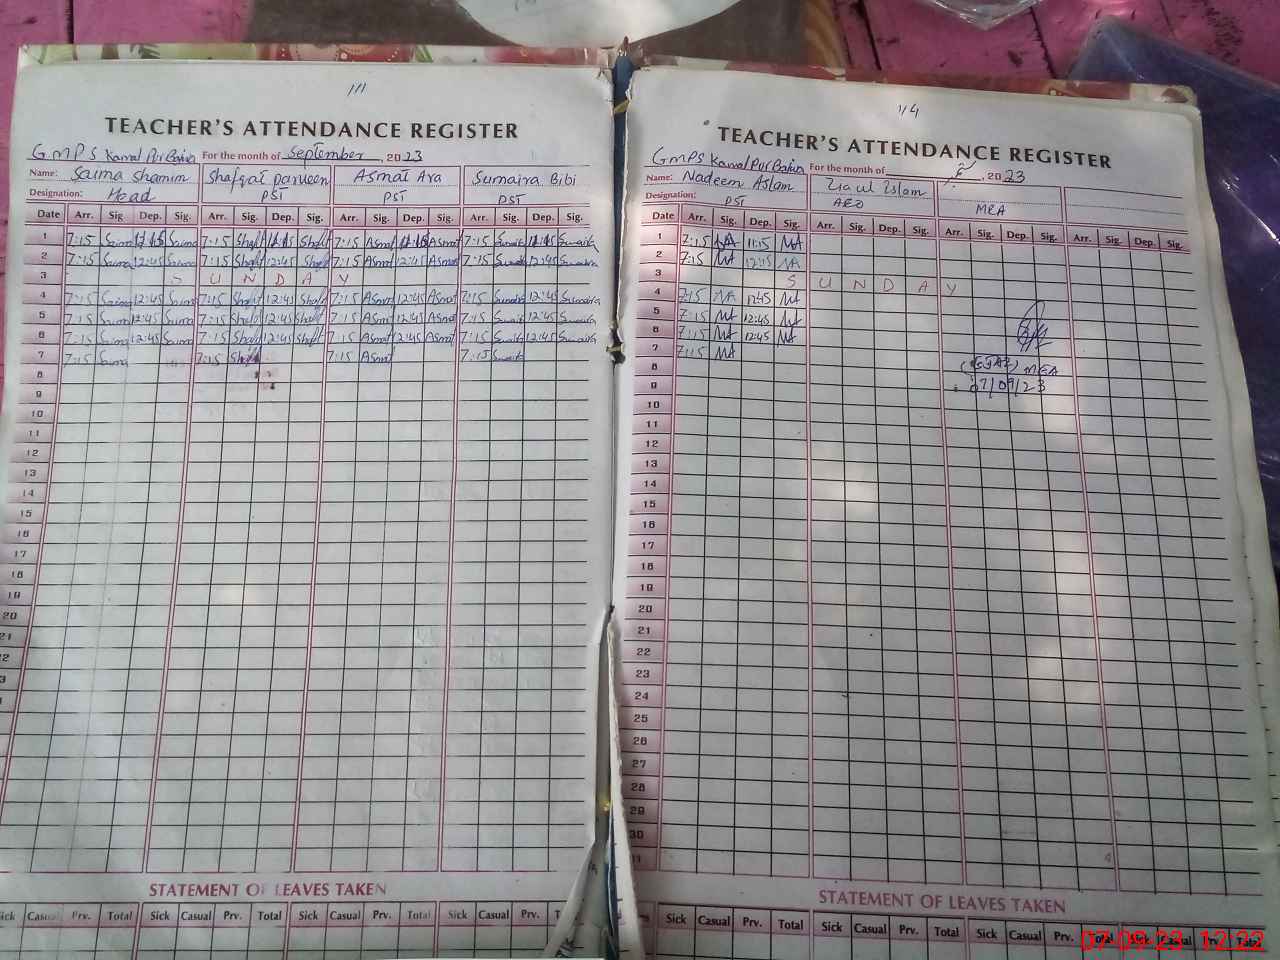 111
TEACHER'S ATTENDANCE REGISTER
GMPS Kamal Pur Bajun For the month of September, 2023
Name: Saima Shamim Shafqat parveen Asmat Ara Sumaira Bibi
Designation: Head PST PST PST
Date Arr. Sig. Dep. Sig. Arr. Sig. Dep. Sig. Arr. Sig. Dep. Sig. Arr. Sig. Dep. Sig.
1 7:15 Saima 11:15 Saima 7:15 Shaft 11:15 Shaft 7:15 Asmat 11:15 Asmat 7:15 Sumaira 11:15 Sumaira
2 7:15 Saima 12:45 Saima 7:15 Shaft 12:45 Shaft 7:15 Asmat 12:45 Asmat 7:15 Sumaira 12:45 Sumaira
3 S U N D A Y
4 7:15 Saima 12:45 Saima 7:15 Shaft 12:45 Shaft 7:15 Asmat 12:45 Asmat 7:15 Sumaira 12:45 Sumaira
5 7:15 Saima 12:45 Saima 7:15 Shaft 12:45 Shaft 7:15 Asmat 12:45 Asmat 7:15 Sumaira 12:45 Sumaira
6 7:15 Saima 12:45 Saima 7:15 Shaft 12:45 Shaft 7:15 Asmat 12:45 Asmat 7:15 Sumaira 12:45 Sumaira
7 7:15 Saima 7:15 Shaft 7:15 Asmat 7:15 Sumaira
8
9
10
11
12
13
14
15
16
17
18
19
20
21
22
23
24
25
26
27
28
STATEMENT OF LEAVES TAKEN
Sick Casual Prv. Total Sick Casual Prv. Total Sick Casual Prv. Total Sick Casual Prv.
114
TEACHER'S ATTENDANCE REGISTER
GMPS Kamal Pur Bajun For the month of , 2023
Name: Nadeem Aslam Zia ul Islam
Designation: PST AEO MEA
Date Arr. Sig. Dep. Sig. Arr. Sig. Dep. Sig. Arr. Sig. Dep. Sig. Arr. Sig. Dep. Sig.
1 7:15 NA 11:15 NA
2 7:15 NA 12:45 NA
3 S U N D A Y
4 7:15 NA 12:45 NA
5 7:15 NA 12:45 NA
6 7:15 NA 12:45 NA
7 7:15 NA
8 MEA
9 07/09/23
10
11
12
13
14
15
16
17
18
19
20
21
22
23
24
25
26
27
28
29
30
31
STATEMENT OF LEAVES TAKEN
Sick Casual Prv. Total Sick Casual Prv. Total Sick Casual Prv. Total Sick Casual Prv. Total
07-09-23 12:22